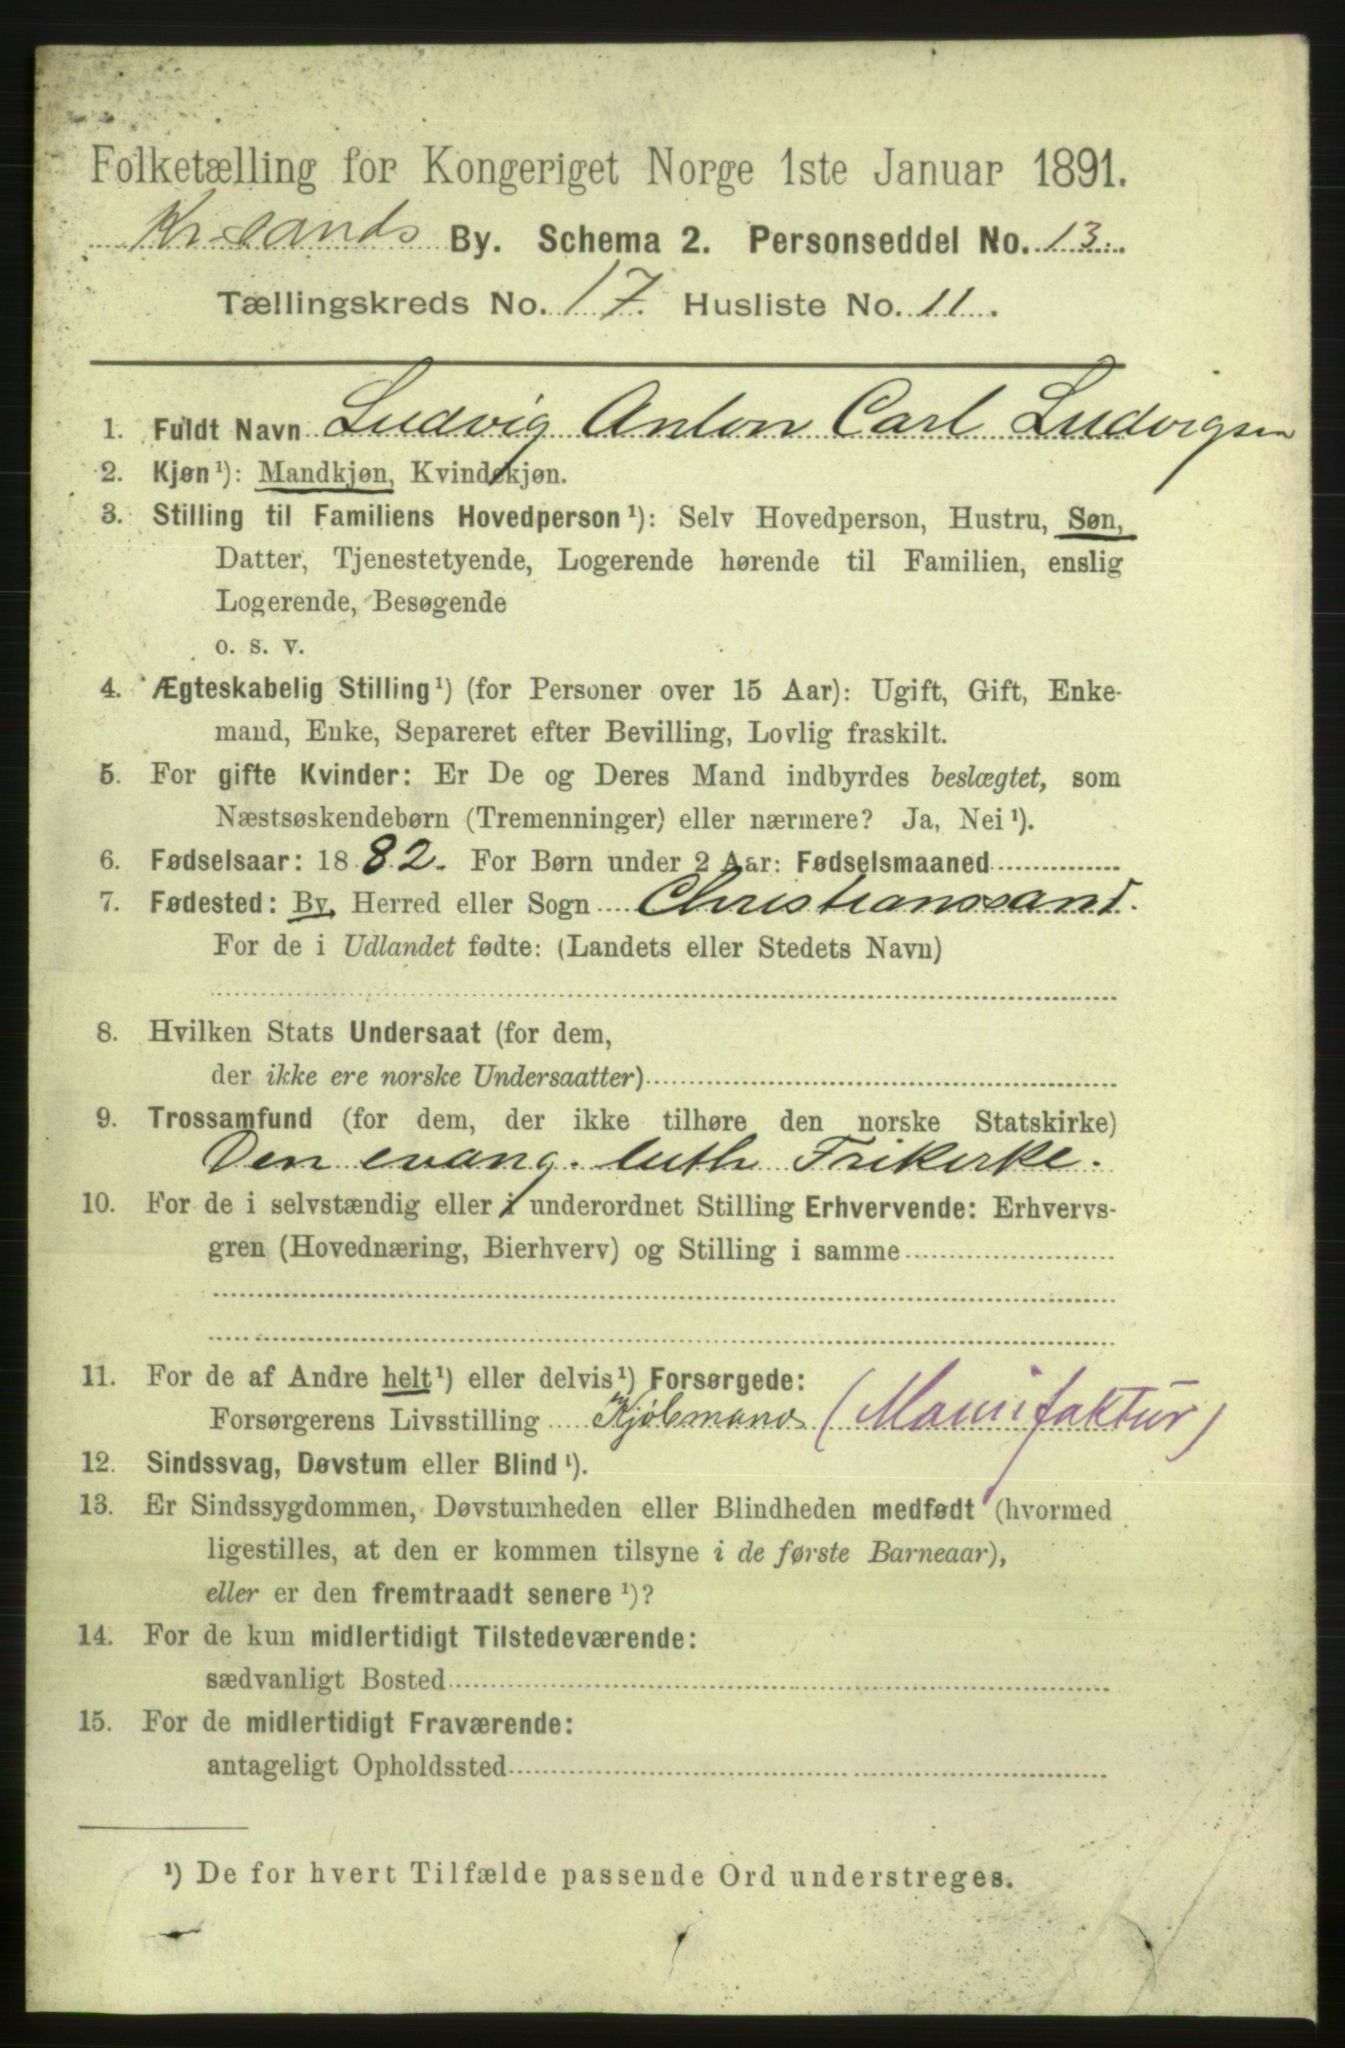 Folketælling for Kongeriget Norge 1ste Januar 1891.
Kr.sands By. Schema 2. Personseddel No. 13.
Tællingskreds No. 17. Husliste No. 11.
1. Fuldt Navn Ludvig Anton Carl Ludvigsen
2. Kjøn¹): Mandkjøn, Kvindekjøn.
3. Stilling til Familiens Hovedperson¹): Selv Hovedperson, Hustru, Søn,
Datter, Tjenestetyende, Logerende hørende til Familien, enslig
Logerende, Besøgende
o. s. v.
4. Ægteskabelig Stilling¹) (for Personer over 15 Aar): Ugift, Gift, Enke-
mand, Enke, Separeret efter Bevilling, Lovlig fraskilt.
5. For gifte Kvinder: Er De og Deres Mand indbyrdes beslægtet, som
Næstsøskendebørn (Tremenninger) eller nærmere? Ja, Nei¹).
6. Fødselsaar: 1882. For Børn under 2 Aar: Fødselsmaaned
7. Fødested: By, Herred eller Sogn Christianssand.
For de i Udlandet fødte: (Landets eller Stedets Navn)
8. Hvilken Stats Undersaat (for dem,
der ikke ere norske Undersaatter)
9. Trossamfund (for dem, der ikke tilhøre den norske Statskirke)
Den evang. luth Frikirke.
10. For de i selvstændig eller i underordnet Stilling Erhvervende: Erhvervs-
gren (Hovednæring, Bierhverv) og Stilling i samme
11. For de af Andre helt¹) eller delvis¹) Forsørgede:
Forsørgerens Livsstilling Kjøbmand (Manifaktur)
12. Sindssvag, Døvstum eller Blind¹).
13. Er Sindssygdommen, Døvstumheden eller Blindheden medfødt (hvormed
ligestilles, at den er kommen tilsyne i de første Barneaar),
eller er den fremtraadt senere¹)?
14. For de kun midlertidigt Tilstedeværende:
sædvanligt Bosted
15. For de midlertidigt Fraværende:
antageligt Opholdssted
¹) De for hvert Tilfælde passende Ord understreges.